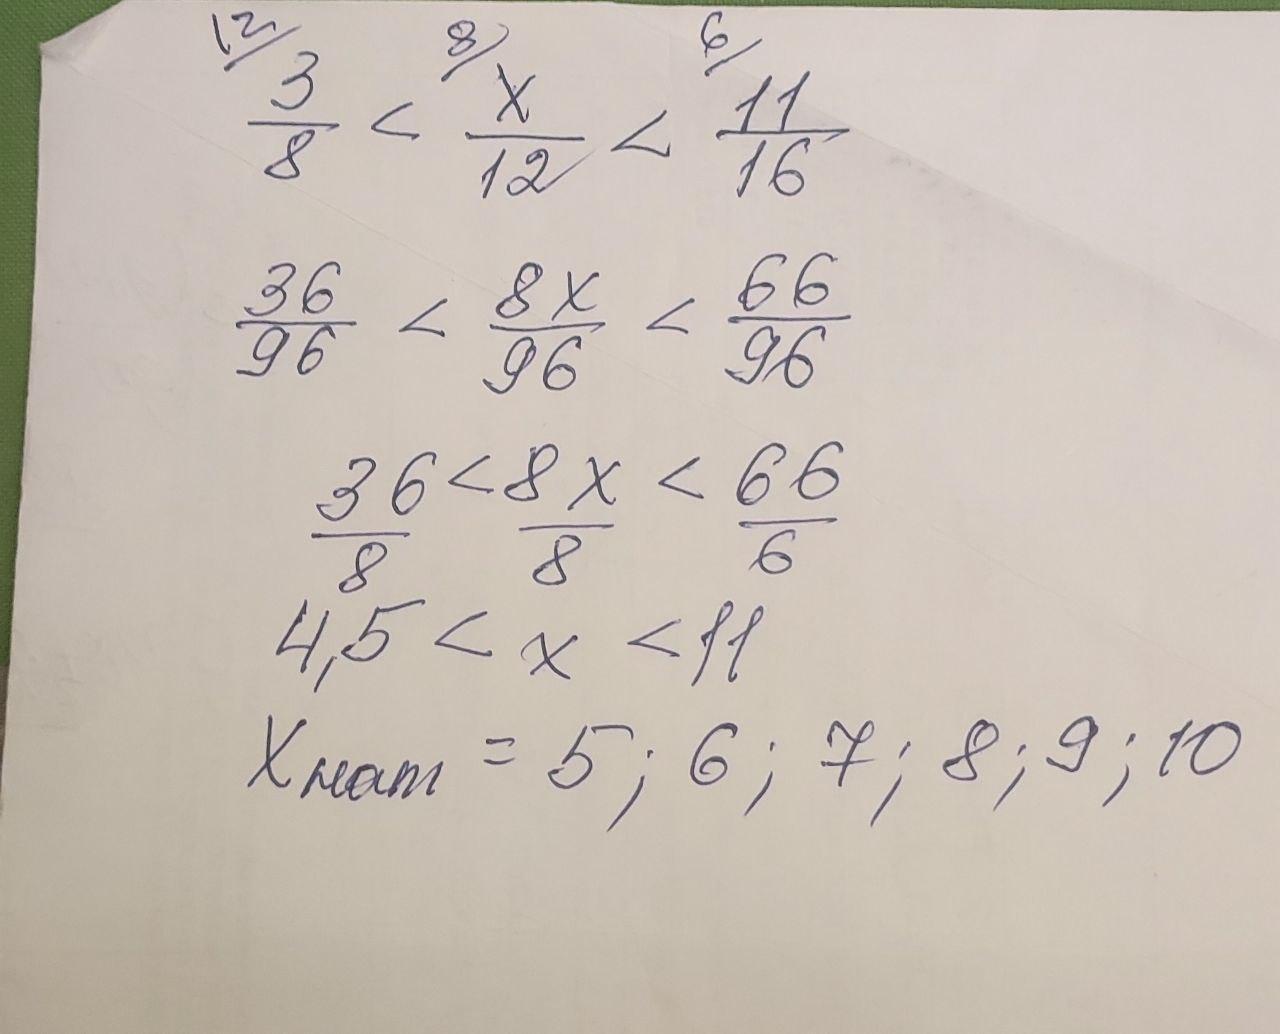 12/ 3/8 < 8/ x/12 < 6/ 11/16
36/96 < 8x/96 < 66/96
36/8 < 8x/8 < 66/6
4,5 < x < 11
Xнат = 5; 6; 7; 8; 9; 10